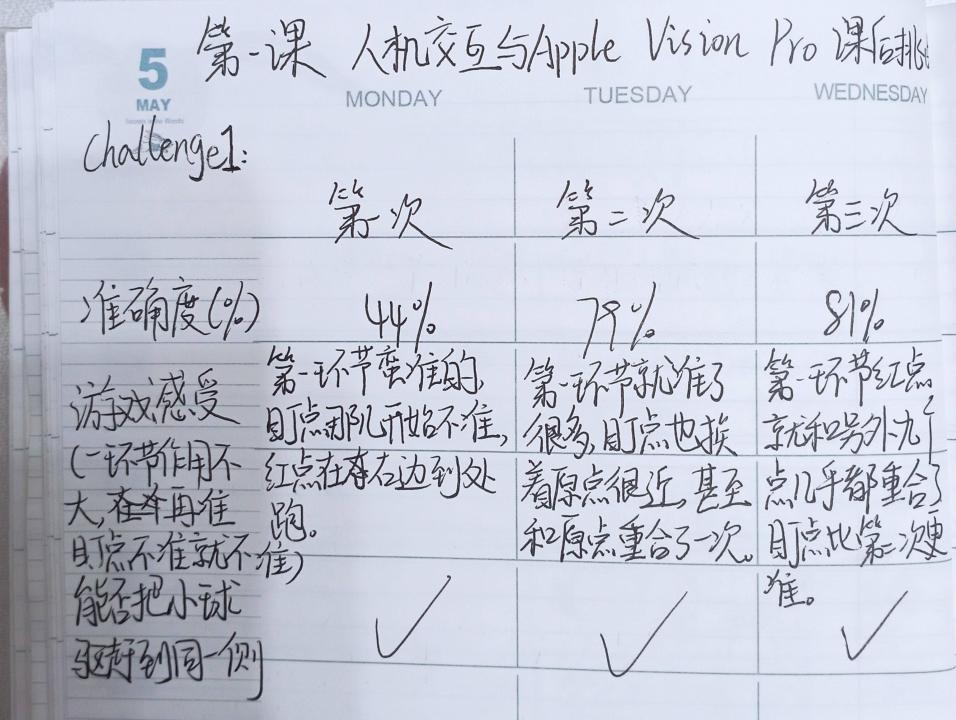 第一课 人机交互与Apple Vision Pro 课后挑
5
MAY
MONDAY
TUESDAY
WEDNESDAY
Challenge1:
第一次
第二次
第三次
准确度(%)
44%
79%
81%
游戏感受
(一环节作用不
大,再准
盯点不准就不准)
第一环节蛮准的,
盯点那儿开始不准,
红点在左边到处
跑。
第一环节就准了
很多,盯点也挨
着原点很近,甚至
和原点重合了一次。
第一环节红点
就和另外九个
点几乎都重合了
盯点比第二次更
准。
能否把小球
驱赶到同一侧
✓
✓
✓